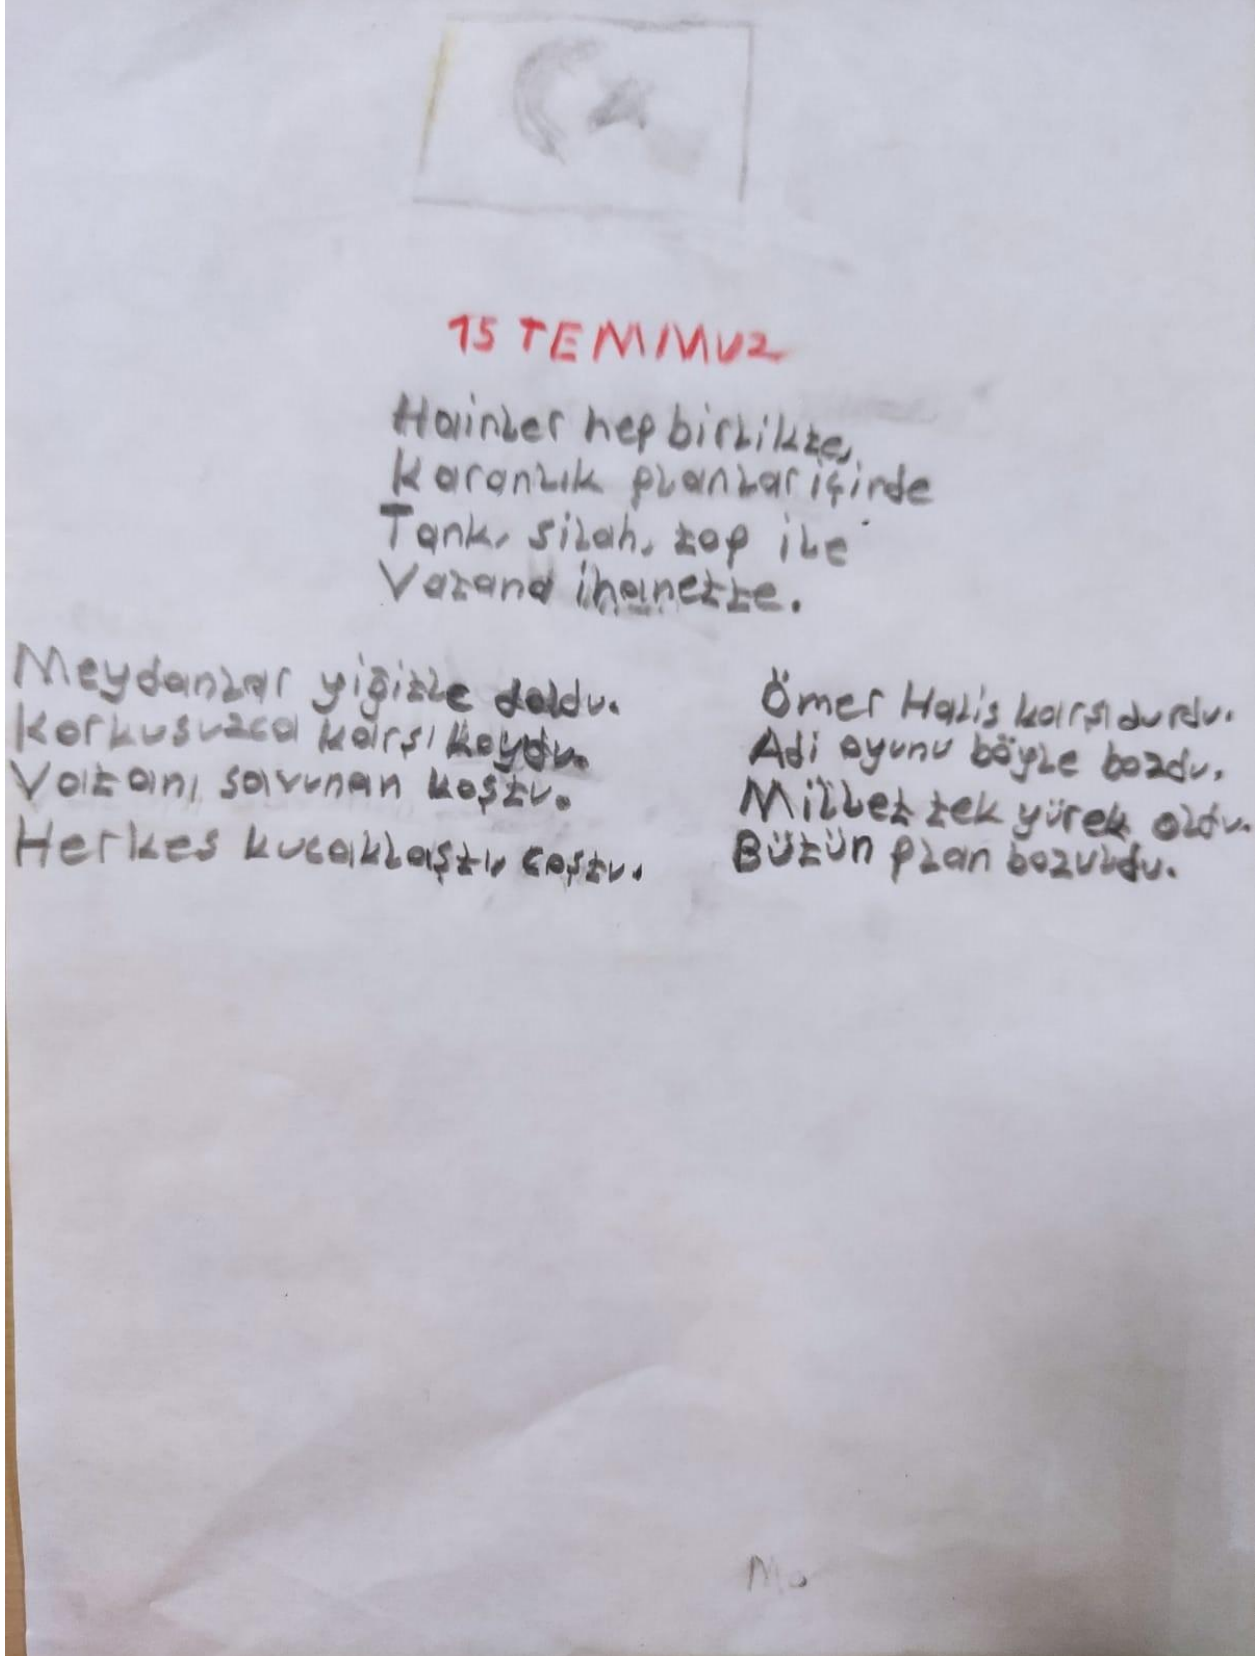 15 TEMMUZ
Hainler hep birlikte,
Karanlık planlar içinde
Tank, silah, top ile
Vatana ihanette.
Meydanlar yiğitle doldu.
Korkusuzca karşı koydu.
Vatanı savunan koştu.
Herkes kucaklaştı, coştu.
Ömer Halis karşı durdu.
Adi oyunu böyle bozdu.
Millet tek yürek oldu.
Bütün plan bozuldu.